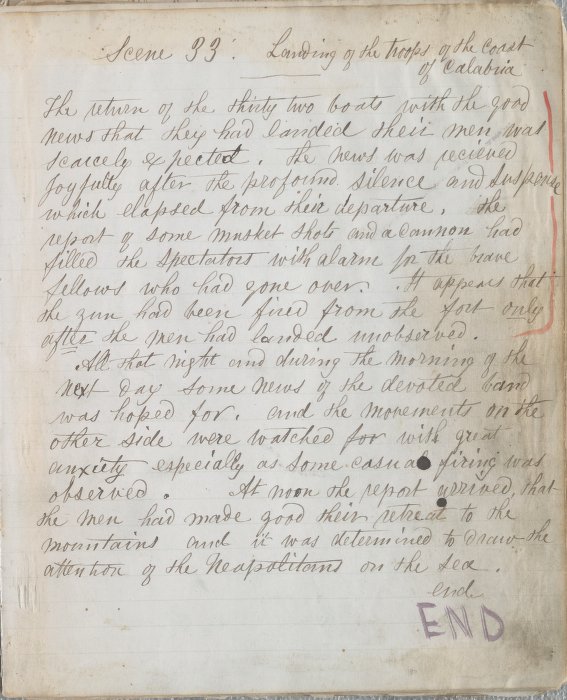 Scene 33. Landing of the troops of the Coast
of Calabria
The return of the thirty two boats with the good
news that they had landed their men was
scarcely expected. The news was recieved
joyfully after the profound silence and suspense
which elapsed from their departure. The
report of some musket shots and a cannon had
filled the spectators with alarm for the brave
fellows who had gone over. It appears that
the gun had been fired from the fort only
after the men had landed unobserved.
All that night and during the morning of the
next day some news of the devoted band
was hoped for. and the movements on the
other side were watched for with great
anxiety especially as some casual firing was
observed. At noon the report arrived, that
the men had made good their retreat to the
mountains and it was determined to draw the
attention of the Neapolitans on the sea.
end
END